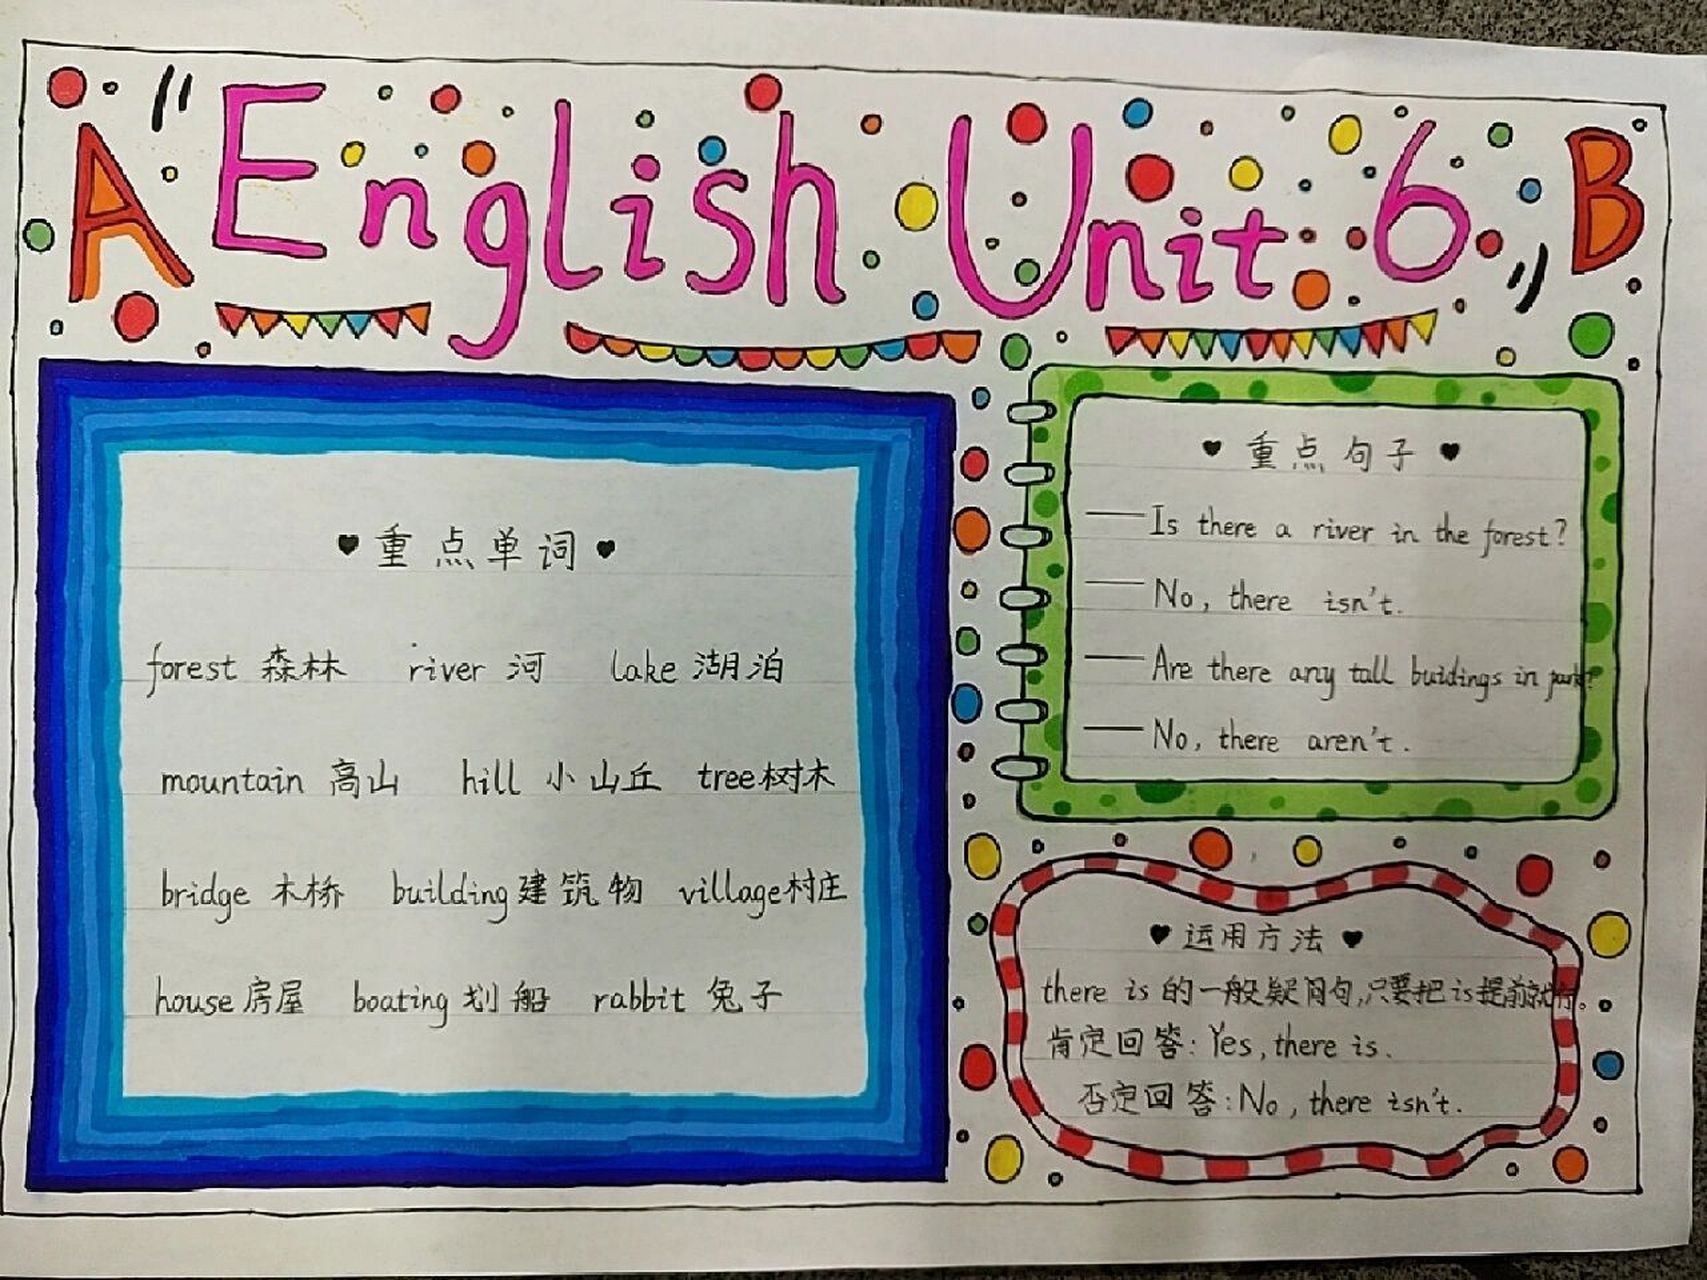 A "English Unit 6" B
♥重点单词♥
forest 森林 river 河 lake 湖泊
mountain 高山 hill 小山丘 tree树木
bridge 木桥 building建筑物 village村庄
house房屋 boating 划船 rabbit 兔子
♥重点句子♥
——Is there a river in the forest?
——No, there isn't.
——Are there any tall buidings in park?
——No, there aren't.
♥运用方法♥
there is 的一般疑问句,只要把is提前就行。
肯定回答: Yes, there is.
否定回答: No, there isn't.